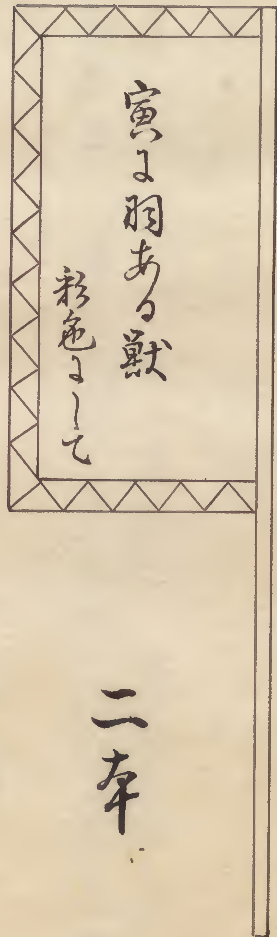 寅に羽ある獣
彩色にして
二本